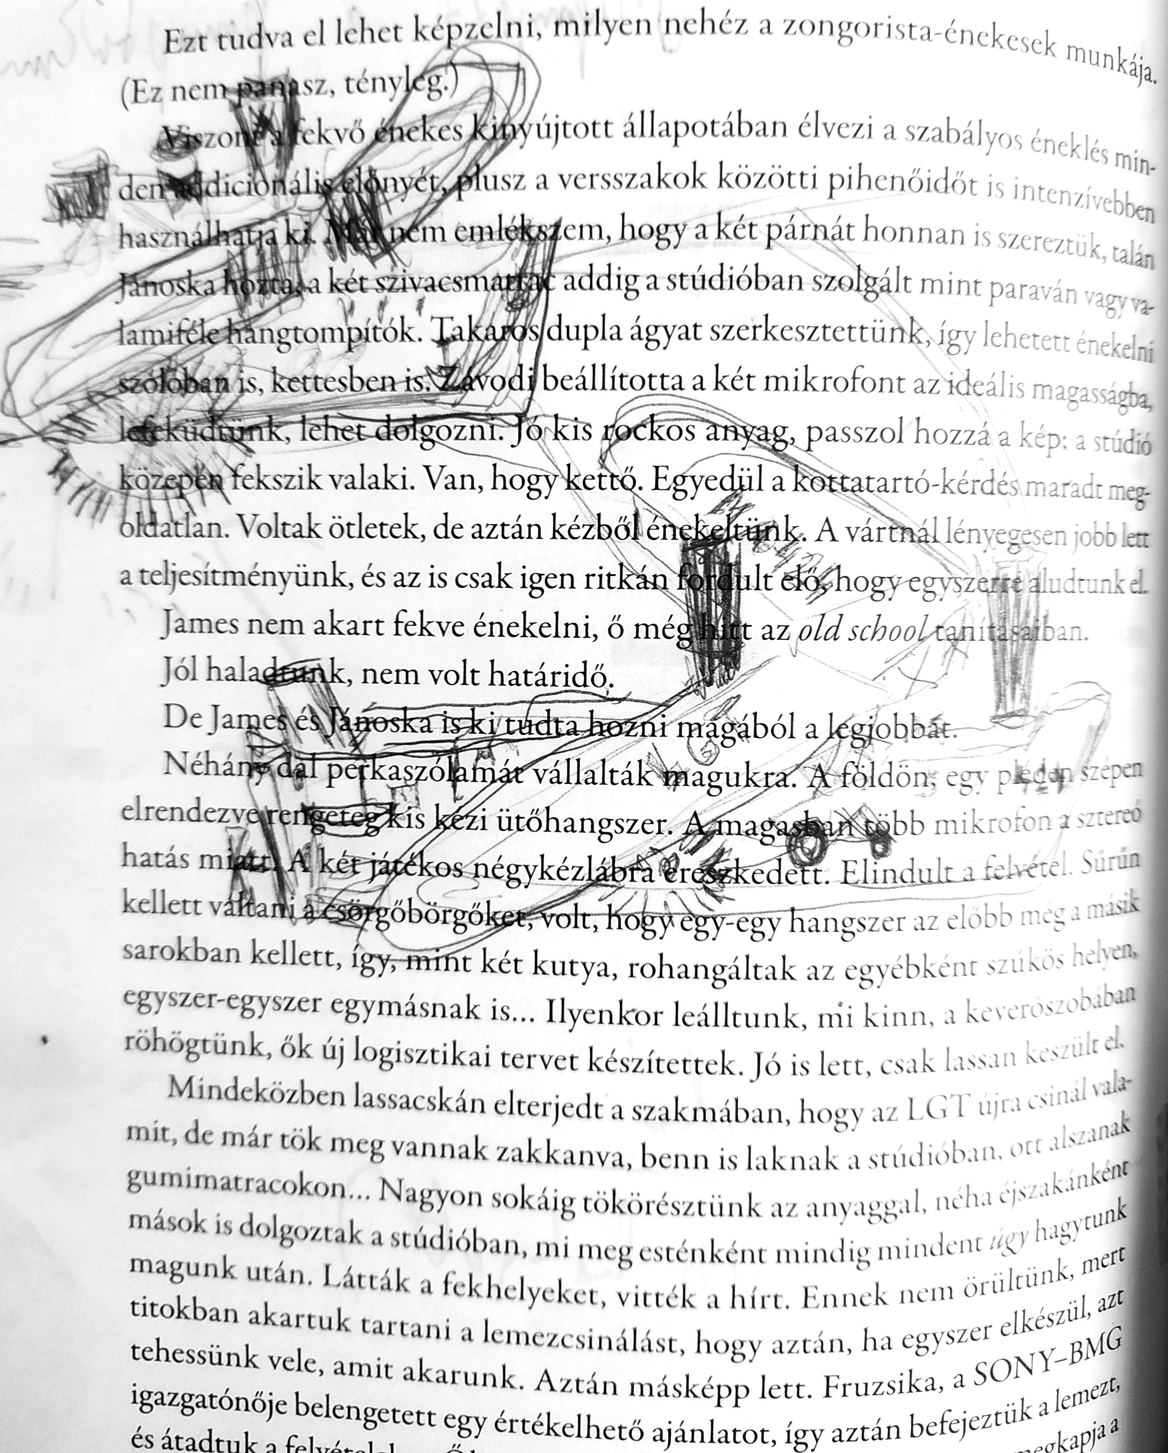 Ezt tudva el lehet képzelni, milyen nehéz a zongorista-énekesek munkája.
(Ez nem panasz, tényleg.)
Viszont a fekvő énekes kinyújtott állapotában élvezi a szabályos éneklés min-
den addicionális előnyét, plusz a versszakok közötti pihenőidőt is intenzívebben
használhatja ki. Már nem emlékszem, hogy a két párnát honnan is szereztük, talán
Jánoska hozta, a két szivacsmatrac addig a stúdióban szolgált mint paraván vagy va-
lamiféle hangtompítók. Takaros dupla ágyat szerkesztettünk, így lehetett énekelni
szólóban is, kettesben is. Závodi beállította a két mikrofont az ideális magasságba,
lefeküdtünk, lehet dolgozni. Jó kis rockos anyag, passzol hozzá a kép: a stúdió
közepén fekszik valaki. Van, hogy kettő. Egyedül a kottatartó-kérdés maradt meg-
oldatlan. Voltak ötletek, de aztán kézből énekeltünk. A vártnál lényegesen jobb lett
a teljesítményünk, és az is csak igen ritkán fordult elő, hogy egyszerre aludtunk el.
James nem akart fekve énekelni, ő még hitt az old school tanításaiban.
Jól haladtunk, nem volt határidő.
De James és Jánoska is ki tudta hozni magából a legjobbat.
Néhány dal perkaszólamát vállalták magukra. A földön, egy pléden szépen
elrendezve rengeteg kis kézi ütőhangszer. A magasban több mikrofon a sztereó
hatás miatt. A két játékos négykézlábra ereszkedett. Elindult a felvétel. Sűrűn
kellett váltani a csörgőbörgőket, volt, hogy egy-egy hangszer az előbb még a másik
sarokban kellett, így, mint két kutya, rohangáltak az egyébként szűkös helyen,
egyszer-egyszer egymásnak is... Ilyenkor leálltunk, mi kinn, a keverőszobában
röhögtünk, ők új logisztikai tervet készítettek. Jó is lett, csak lassan készült el.
Mindeközben lassacskán elterjedt a szakmában, hogy az LGT újra csinál vala-
mit, de már tök meg vannak zakkanva, benn is laknak a stúdióban, ott alszanak
gumimatracokon... Nagyon sokáig tökörésztünk az anyaggal, néha éjszakánként
mások is dolgoztak a stúdióban, mi meg esténként mindig mindent úgy hagytunk
magunk után. Látták a fekhelyeket, vitték a hírt. Ennek nem örültünk, mert
titokban akartuk tartani a lemezcsinálást, hogy aztán, ha egyszer elkészül, azt
tehessünk vele, amit akarunk. Aztán másképp lett. Fruzsika, a SONY–BMG
igazgatónője belengetett egy értékelhető ajánlatot, így aztán befejeztük a lemezt,
és átadtuk a megkapja a